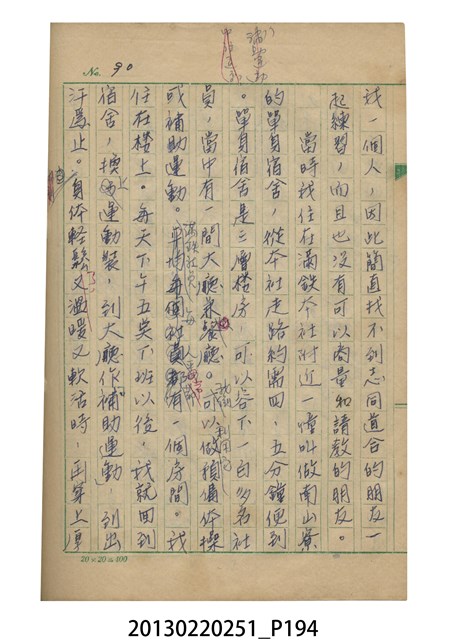 No. 90
找一個人，因此簡直找不到志同道合的朋友一
起練習，而且也沒有可以商量和請教的朋友。
當時我住在滿鉄本社附近一幢叫做南山寮
的單身宿舍，從本社走路約需四、五分鐘便到
。單身宿舍是三層樓房，可以容下一百多名社
員，當中有一間大廳兼餐廳。可以做預備体操
或補助運動。
滿鉄社員每人都有一個房間。我
住在樓上。每天下午五点下班以後，我就回到
宿舍，換上運動裝，到大廳作補助運動，到出
汗為止。身体輕鬆又溫暖又軟活時，再穿上厚
20×20=400
20130220251_P194